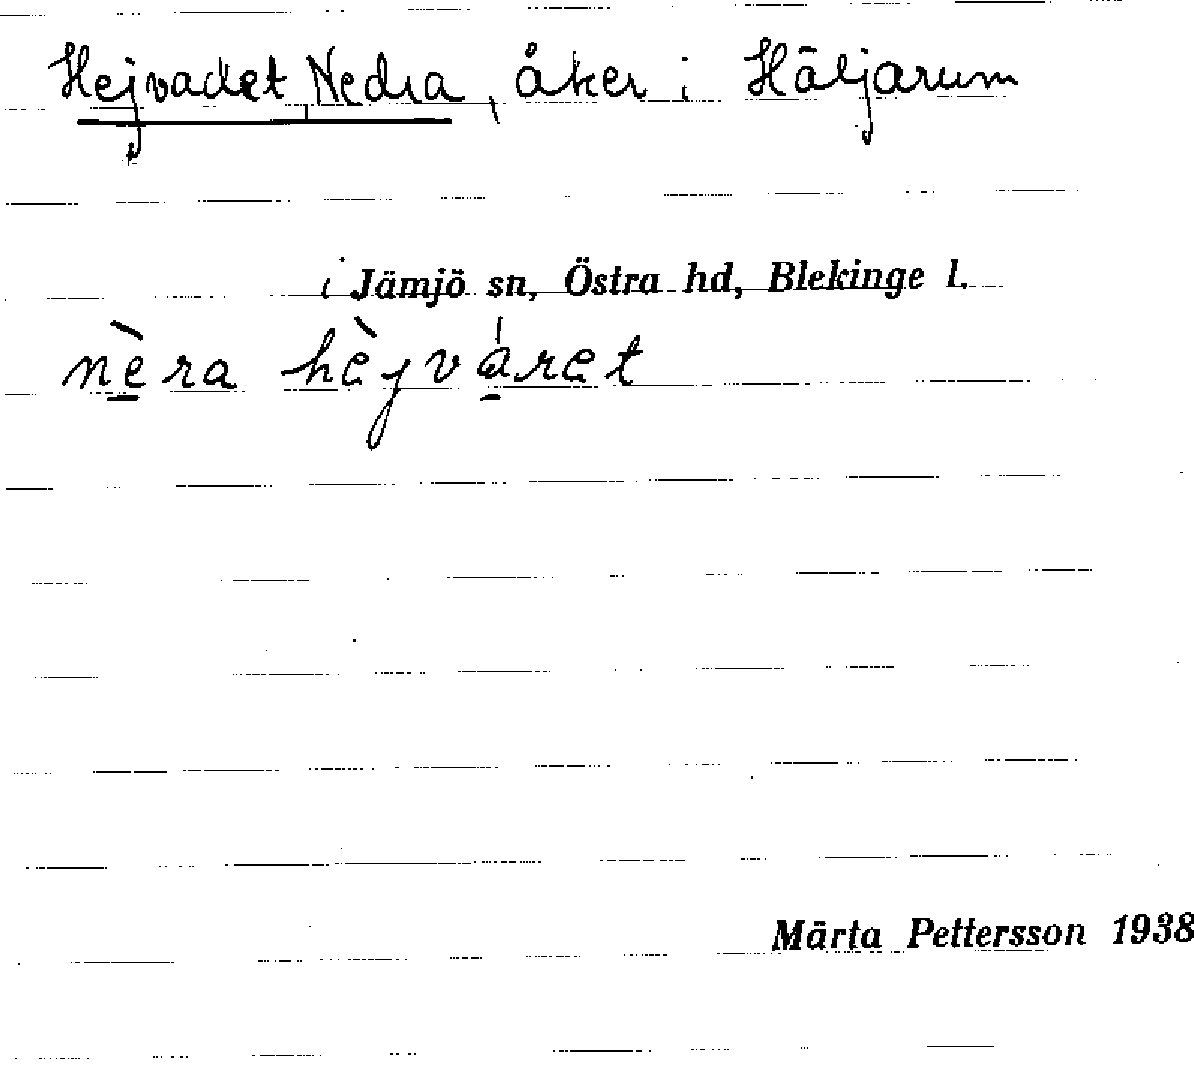 Hejvadet, Nedra, åker i Häljarum
i Jämjö sn, Östra hd, Blekinge l.
nèra hèjváret
Märta Pettersson 1938